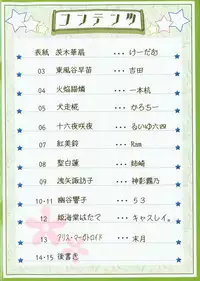 コンテンツ
表紙 茨木華扇 ･･･ けーだむ
03 東風谷早苗 ･･･ 吉田
04 火焔猫燐 ･･･ 一本杭
05 犬走椛 ･･･ かろちー
06 十六夜咲夜 ･･･ るいゆ六四
07 紅美鈴 ･･･ Ram
08 聖白蓮 ･･･ 姉崎
09 洩矢諏訪子 ･･･ 神影霧乃
10-11 幽谷響子 ･･･ 53
12 姫海棠はたて ･･･ キャスレイ。
13 アリス・マーガトロイド ･･･ 末月
14-15 後書き